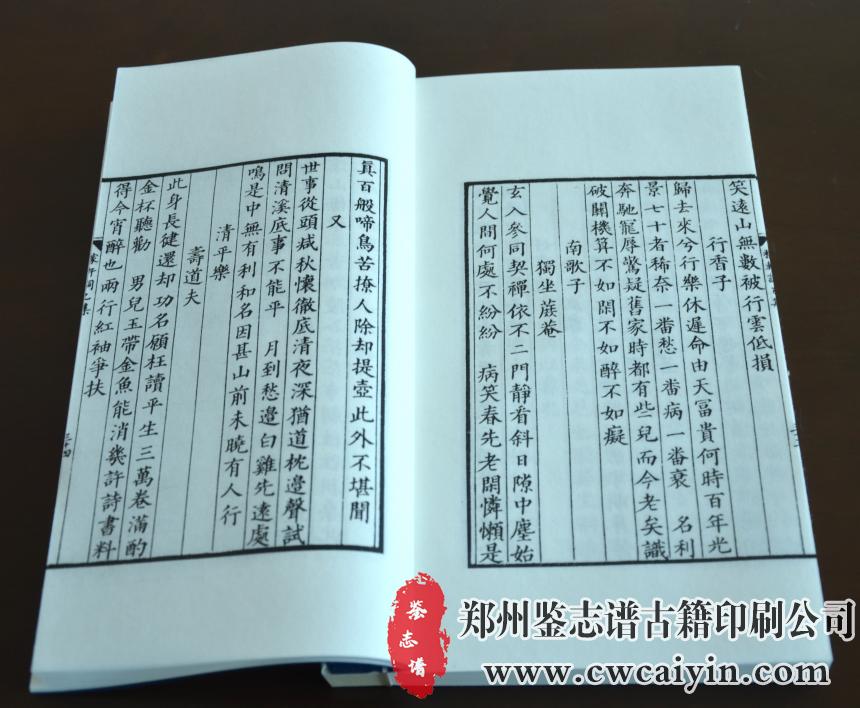 笑遠山無數被行雲低損
行香子
歸去來兮行樂休遲命由天冨貴何時百年光
景七十者稀奈一番愁一番病一番衰 名利
奔馳寵辱驚疑舊家時都有些兒而今老矣識
破關機算不如閑不如醉不如癡
南歌子
獨坐蔗菴
玄入參同契禪依不二門靜看斜日隙中塵始
覺人間何處不紛紛 病笑春先老閑憐懶是
真百般啼鳥苦撩人除却提壺此外不堪聞
又
世事從頭减秋懷徹底清夜深猶道枕邊聲試
問清溪底事不能平 月到愁邊白雞先遠處
鳴是中無有利和名因甚山前未曉有人行
清平樂
壽道夫
此身長健還却功名願枉讀平生三萬卷滿酌
金杯聽勸 男兒玉帶金魚能消幾許詩書料
得今宵醉也兩行紅袖爭扶
三十四
鉴志谱
郑州鉴志谱古籍印刷公司
www.cwcaiyin.com